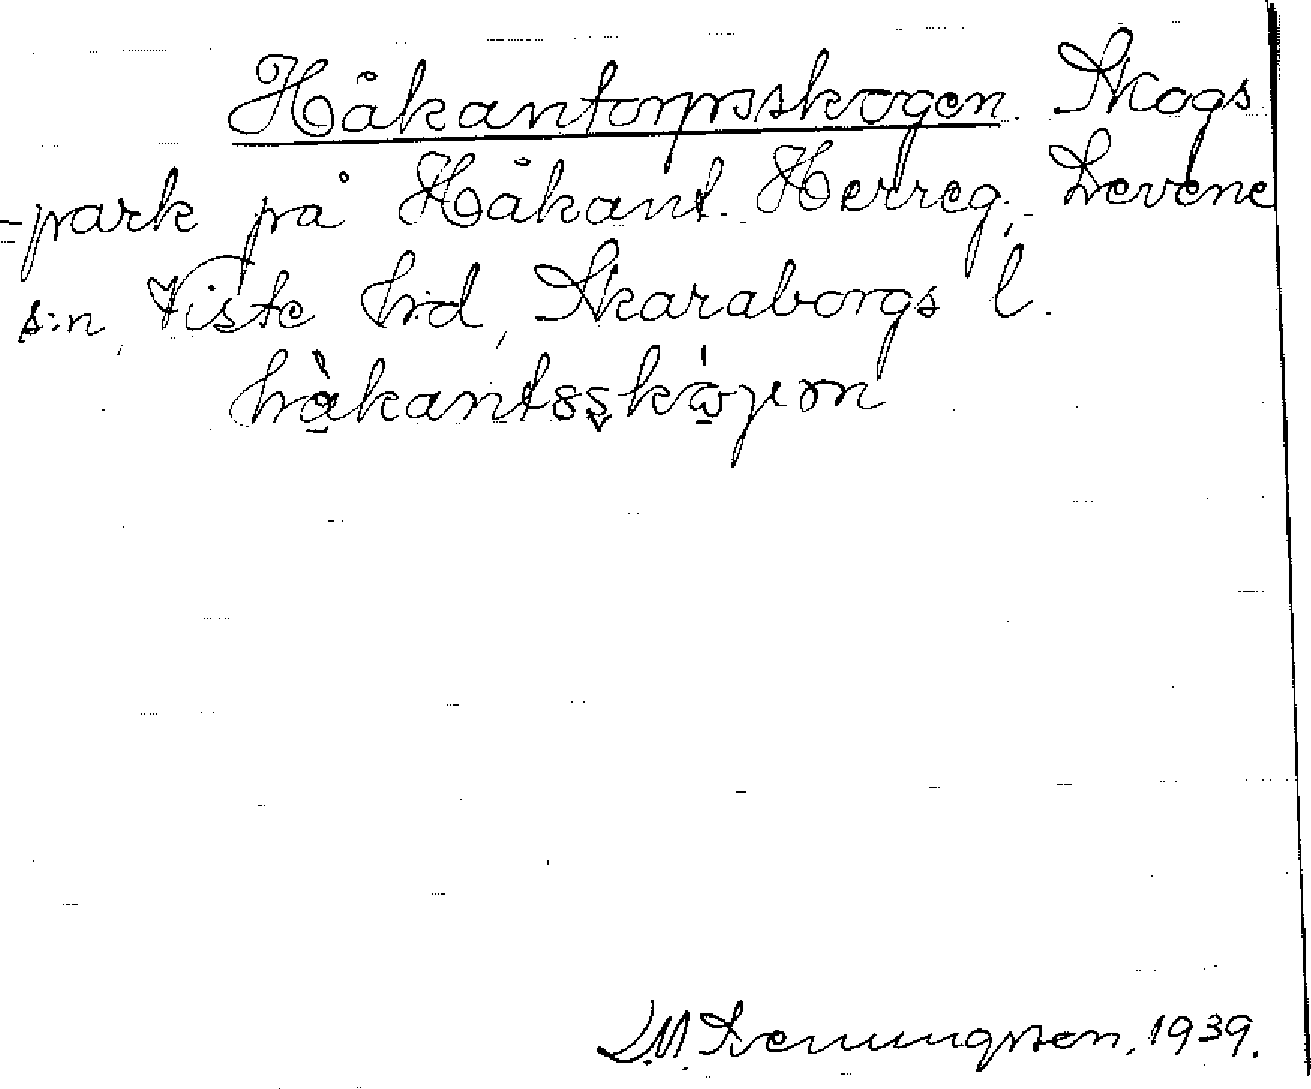 Håkantorpsskogen. Skogs
-park på Håkant. Herreg., Levene
s:n, Viste hrd, Skaraborgs l.
håkantsskɷjen
L.M. 1939.